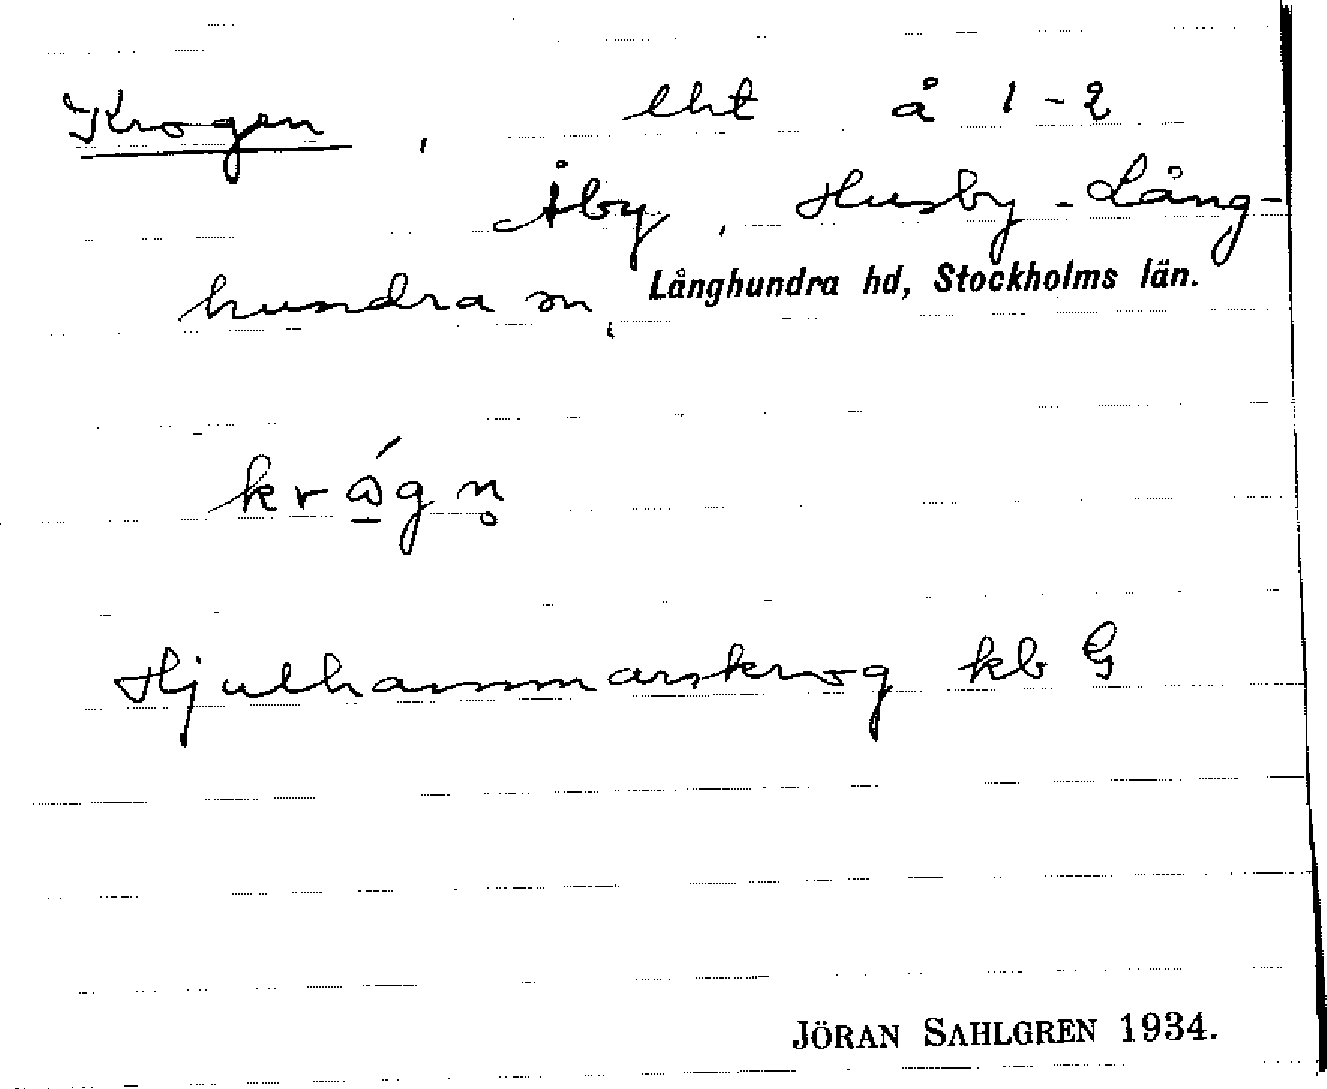 Krogen, lht å 1-2
Åby, Husby-Lång-
hundra sn, Långhundra hd, Stockholms län.
krώ̱gn̥
Hjulhammarskrog kb G
JÖRAN SAHLGREN 1934.